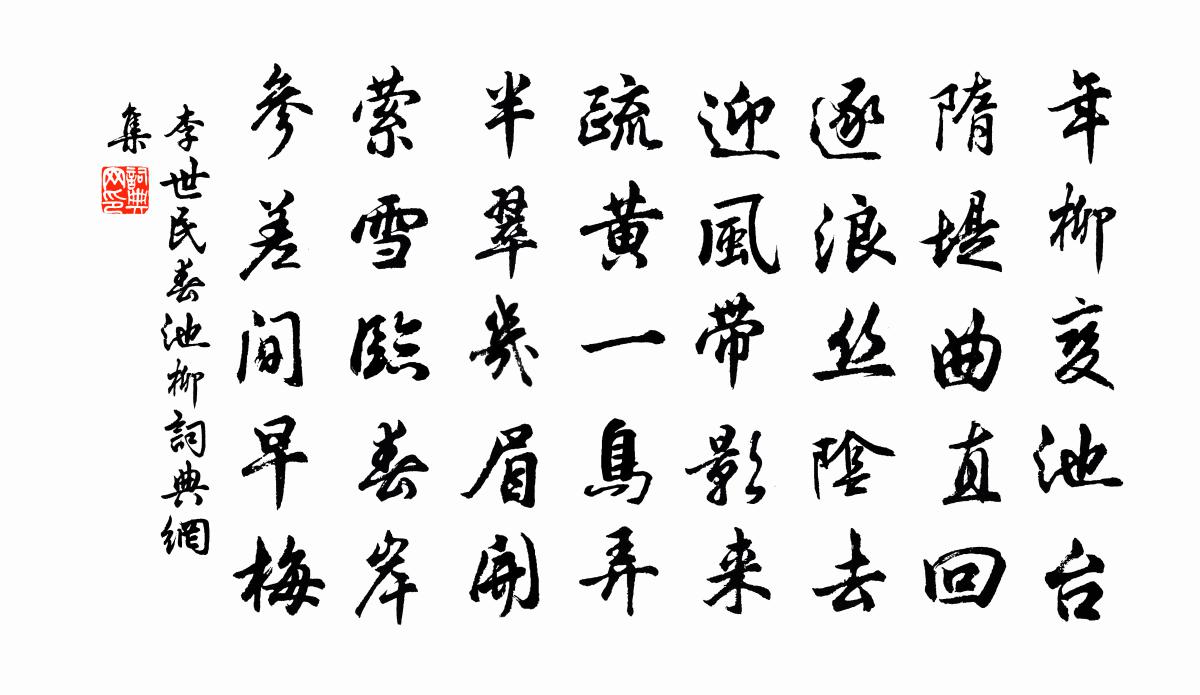 年柳变池台
隋堤曲直回
逐浪丝陰去
迎風带影来
疏黄一鳥弄
半翠幾眉開
萦雪臨春岸
參差間早梅
李世民春池柳詞典網
集
詞典网印